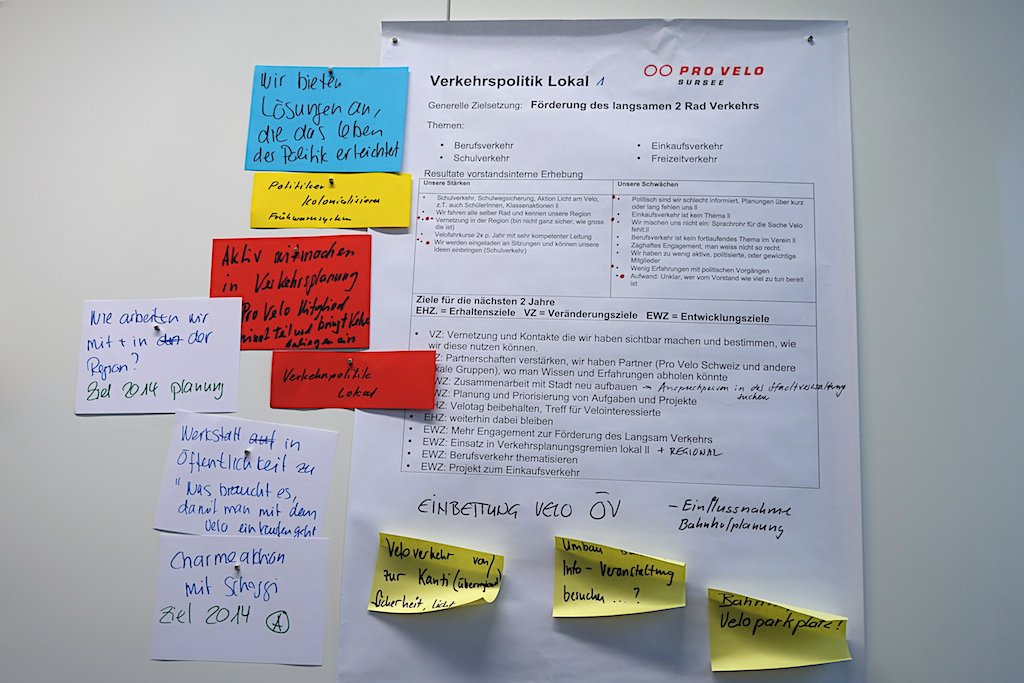 Wir bieten
Lösungen an,
die das Leben
der Politik erleichtet
Politiker
Kolonialisieren
Frühwarnsystem
Aktiv mitmachen
in Verkehrsplanung
Pro Velo Mitglied
nimmt teil und bringt
ein
Verkehrspolitik
Lokal
Wie arbeiten wir
mit + in der
Region?
Ziel 2014 planung
Werkstatt auf in
Öffentlichkeit zu
"Was braucht es,
damit man mit dem
Velo einkaufen geht
Charmeaktion
mit Schoggi
Ziel 2014 A
Verkehrspolitik Lokal 1
PRO VELO
SURSEE
Generelle Zielsetzung: Förderung des langsamen 2 Rad Verkehrs
Themen:
• Berufsverkehr
• Schulverkehr
• Einkaufsverkehr
• Freizeitverkehr
Resultate vorstandsinterne Erhebung
Unsere Stärken
• Schulverkehr, Schulwegsicherung, Aktion Licht am Velo,
z.T. auch SchülerInnen, Klassenaktionen II
• Wir fahren alle selber Rad und kennen unsere Region
• Vernetzung in der Region (bin nicht ganz sicher, wie gross
die ist)
• Velofahrkurse 2x p. Jahr mit sehr kompetenter Leitung
• Wir werden eingeladen an Sitzungen und können unsere
Ideen einbringen (Schulverkehr)
Unsere Schwächen
• Politisch sind wir schlecht informiert, Planungen über kurz
oder lang fehlen uns II
• Einkaufsverkehr ist kein Thema II
• Wir mischen uns nicht ein: Sprachrohr für die Sache Velo
fehlt II
• Berufsverkehr ist kein fortlaufendes Thema im Verein II
• Zaghaftes Engagement, man weiss nicht so recht.
• Wir haben zu wenig aktive, politisierte, oder gewichtige
Mitglieder
• Wenig Erfahrungen mit politischen Vorgängen
• Aufwand: Unklar, wer vom Vorstand wie viel zu tun bereit
ist
Ziele für die nächsten 2 Jahre
EHZ. = Erhaltensziele VZ = Veränderungsziele EWZ = Entwicklungsziele
• VZ: Vernetzung und Kontakte die wir haben sichtbar machen und bestimmen, wie
wir diese nutzen können.
Z: Partnerschaften verstärken, wir haben Partner (Pro Velo Schweiz und andere
kale Gruppen), wo man Wissen und Erfahrungen abholen könnte
WZ: Zusammenarbeit mit Stadt neu aufbauen → Ansprechperson in der Stadtverwaltung
suchen
WZ: Planung und Priorisierung von Aufgaben und Projekte
HZ: Velotag beibehalten, Treff für Velointeressierte
• EHZ: weiterhin dabei bleiben
• EWZ: Mehr Engagement zur Förderung des Langsam Verkehrs
• EWZ: Einsatz in Verkehrsplanungsgremien lokal II + REGIONAL
• EWZ: Berufsverkehr thematisieren
• EWZ: Projekt zum Einkaufsverkehr
EINBETTUNG VELO ÖV
- Einflussnahme
Bahnhofplanung
Veloverkehr von/
zur Kanti (überregional)
Sicherheit, Licht
Umbau
Info-Veranstaltung
besuchen...?
Veloparkplatz!